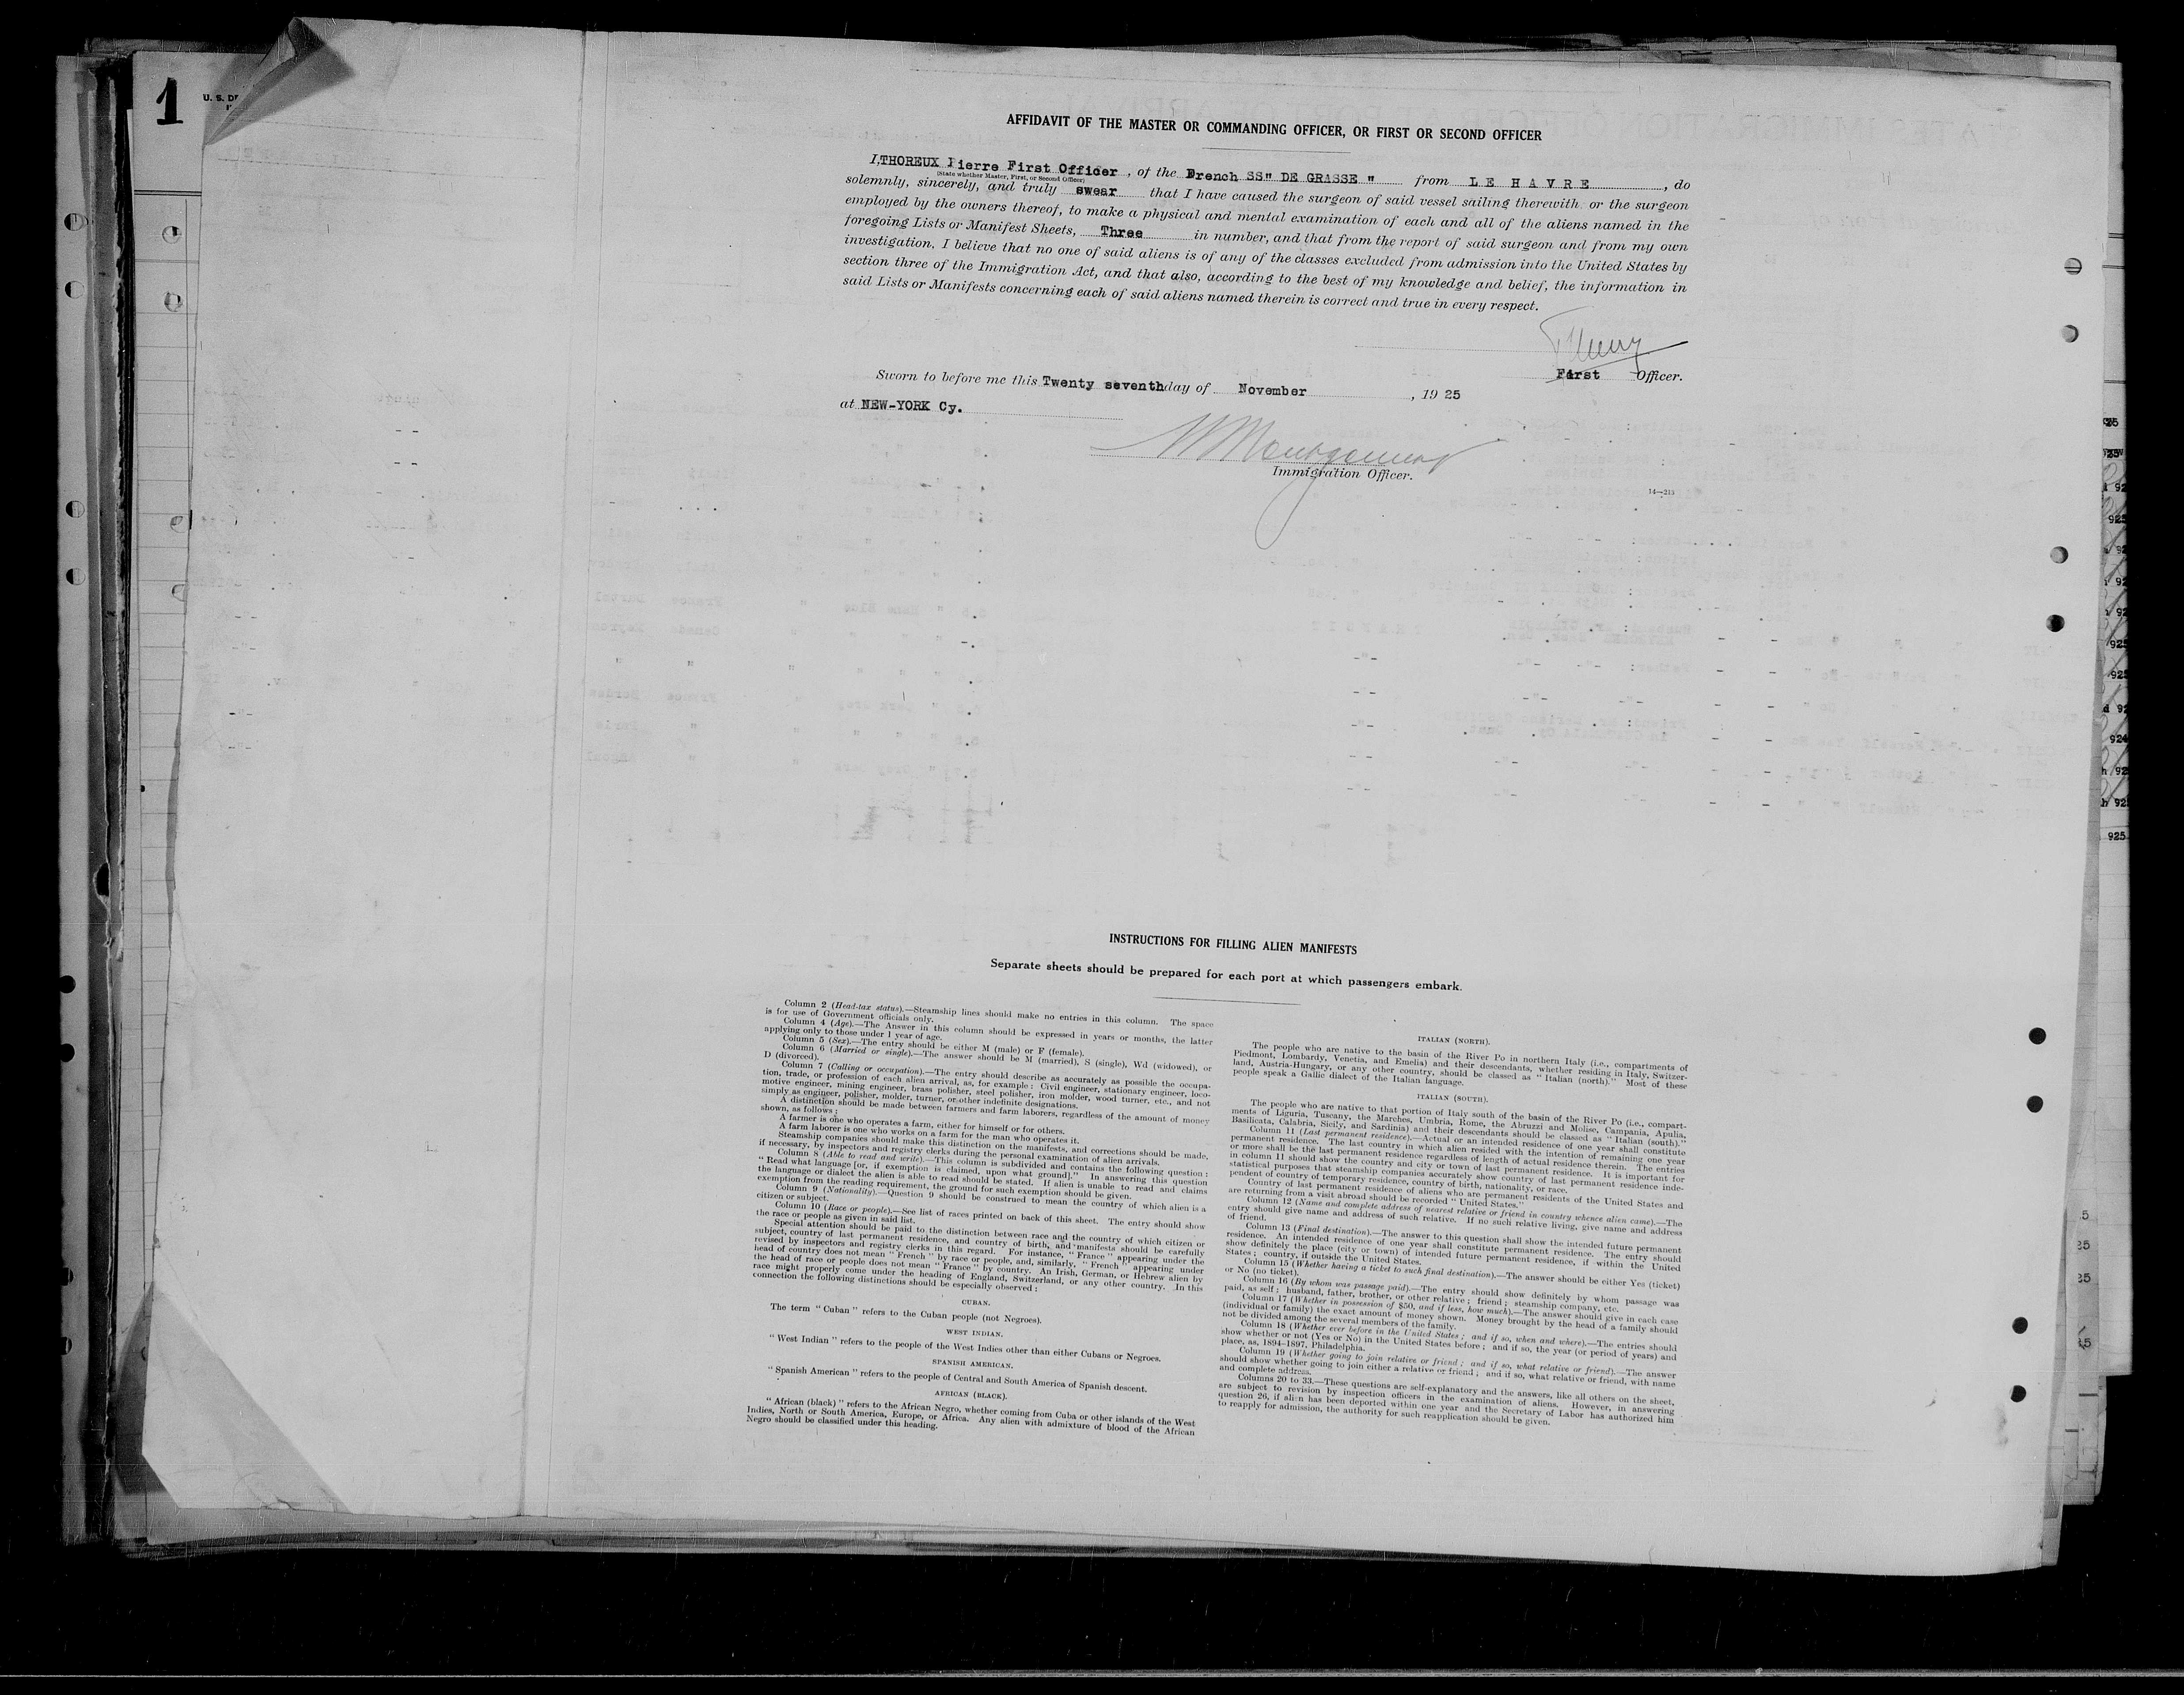 1
U. S. DE
AFFIDAVIT OF THE MASTER OR COMMANDING OFFICER, OR FIRST OR SECOND OFFICER
I, THOREUX Pierre First Officer , of the French SS" DE GRASSE " from L E H A V R E , do
(State whether Master, First, or Second Officer)
solemnly, sincerely, and truly swear that I have caused the surgeon of said vessel sailing therewith or the surgeon
employed by the owners thereof, to make a physical and mental examination of each and all of the aliens named in the
foregoing Lists or Manifest Sheets, Three in number, and that from the report of said surgeon and from my own
investigation, I believe that no one of said aliens is of any of the classes excluded from admission into the United States by
section three of the Immigration Act, and that also, according to the best of my knowledge and belief, the information in
said Lists or Manifests concerning each of said aliens named therein is correct and true in every respect.
First Officer.
Sworn to before me this Twenty seventh day of November , 19 25
at NEW-YORK Cy.
Montgomery
Immigration Officer.
14—213
INSTRUCTIONS FOR FILLING ALIEN MANIFESTS
Separate sheets should be prepared for each port at which passengers embark.
Column 2 (Head-tax status).—Steamship lines should make no entries in this column. The space
is for use of Government officials only.
Column 4 (Age).—The Answer in this column should be expressed in years or months, the latter
applying only to those under 1 year of age.
Column 5 (Sex).—The entry should be either M (male) or F (female).
Column 6 (Married or single).—The answer should be M (married), S (single), Wd (widowed), or
D (divorced).
Column 7 (Calling or occupation).—The entry should describe as accurately as possible the occupa-
tion, trade, or profession of each alien arrival, as, for example : Civil engineer, stationary engineer, loco-
motive engineer, mining engineer, brass polisher, steel polisher, iron molder, wood turner, etc., and not
simply as engineer, polisher, molder, turner, or other indefinite designations.
A distinction should be made between farmers and farm laborers, regardless of the amount of money
shown, as follows :
A farmer is one who operates a farm, either for himself or for others.
A farm laborer is one who works on a farm for the man who operates it.
Steamship companies should make this distinction on the manifests, and corrections should be made,
if necessary, by inspectors and registry clerks during the personal examination of alien arrivals.
Column 8 (Able to read and write).—This column is subdivided and contains the following question :
" Read what language [or, if exemption is claimed, upon what ground]." In answering this question
the language or dialect the alien is able to read should be stated. If alien is unable to read and claims
exemption from the reading requirement, the ground for such exemption should be given.
Column 9 (Nationality).—Question 9 should be construed to mean the country of which alien is a
citizen or subject.
Column 10 (Race or people).—See list of races printed on back of this sheet. The entry should show
the race or people as given in said list.
Special attention should be paid to the distinction between race and the country of which citizen or
subject, country of last permanent residence, and country of birth, and manifests should be carefully
revised by inspectors and registry clerks in this regard. For instance, " France " appearing under the
head of country does not mean " French " by race or people, and, similarly, " French " appearing under
the head of race or people does not mean " France " by country. An Irish, German, or Hebrew alien by
race might properly come under the heading of England, Switzerland, or any other country. In this
connection the following distinctions should be especially observed :
CUBAN.
The term " Cuban " refers to the Cuban people (not Negroes).
WEST INDIAN.
" West Indian " refers to the people of the West Indies other than either Cubans or Negroes.
SPANISH AMERICAN.
" Spanish American " refers to the people of Central and South America of Spanish descent.
AFRICAN (BLACK).
" African (black) " refers to the African Negro, whether coming from Cuba or other islands of the West
Indies, North or South America, Europe, or Africa. Any alien with admixture of blood of the African
Negro should be classified under this heading.
ITALIAN (NORTH).
The people who are native to the basin of the River Po in northern Italy (i.e., compartments of
Piedmont, Lombardy, Venetia, and Emelia) and their descendants, whether residing in Italy, Switzer-
land, Austria-Hungary, or any other country, should be classed as " Italian (north)." Most of these
people speak a Gallic dialect of the Italian language.
ITALIAN (SOUTH).
The people who are native to that portion of Italy south of the basin of the River Po (i.e., compart-
ments of Liguria, Tuscany, the Marches, Umbria, Rome, the Abruzzi and Molise, Campania, Apulia,
Basilicata, Calabria, Sicily, and Sardinia) and their descendants should be classed as " Italian (south)."
Column 11 (Last permanent residence).—Actual or an intended residence of one year shall constitute
permanent residence. The last country in which alien resided with the intention of remaining one year
or more shall be the last permanent residence regardless of length of actual residence therein. The entries
in column 11 should show the country and city or town of last permanent residence. It is important for
statistical purposes that steamship companies accurately show country of last permanent residence inde-
pendent of country of temporary residence, country of birth, nationality, or race.
Country of last permanent residence of aliens who are permanent residents of the United States and
are returning from a visit abroad should be recorded " United States."
Column 12 (Name and complete address of nearest relative or friend in country whence alien came).—The
entry should give name and address of such relative. If no such relative living, give name and address
of friend.
Column 13 (Final destination).—The answer to this question shall show the intended future permanent
residence. An intended residence of one year shall constitute permanent residence. The entry should
show definitely the place (city or town) of intended future permanent residence, if within the United
States ; country, if outside the United States.
Column 15 (Whether having a ticket to such final destination).—The answer should be either Yes (ticket)
or No (no ticket).
Column 16 (By whom was passage paid).—The entry should show definitely by whom passage was
paid, as self ; husband, father, brother, or other relative ; friend ; steamship company, etc.
Column 17 (Whether in possession of $50, and if less, how much).—The answer should give in each case
(individual or family) the exact amount of money shown. Money brought by the head of a family should
not be divided among the several members of the family.
Column 18 (Whether ever before in the United States ; and if so, when and where).—The entries should
show whether or not (Yes or No) in the United States before ; and if so, the year (or period of years) and
place, as, 1894-1897, Philadelphia.
Column 19 (Whether going to join relative or friend ; and if so, what relative or friend).—The answer
should show whether going to join either a relative or friend ; and if so, what relative or friend, with name
and complete address.
Columns 20 to 33.—These questions are self-explanatory and the answers, like all others on the sheet,
are subject to revision by inspection officers in the examination of aliens. However, in answering
question 26, if alien has been deported within one year and the Secretary of Labor has authorized him
to reapply for admission, the authority for such reapplication should be given.